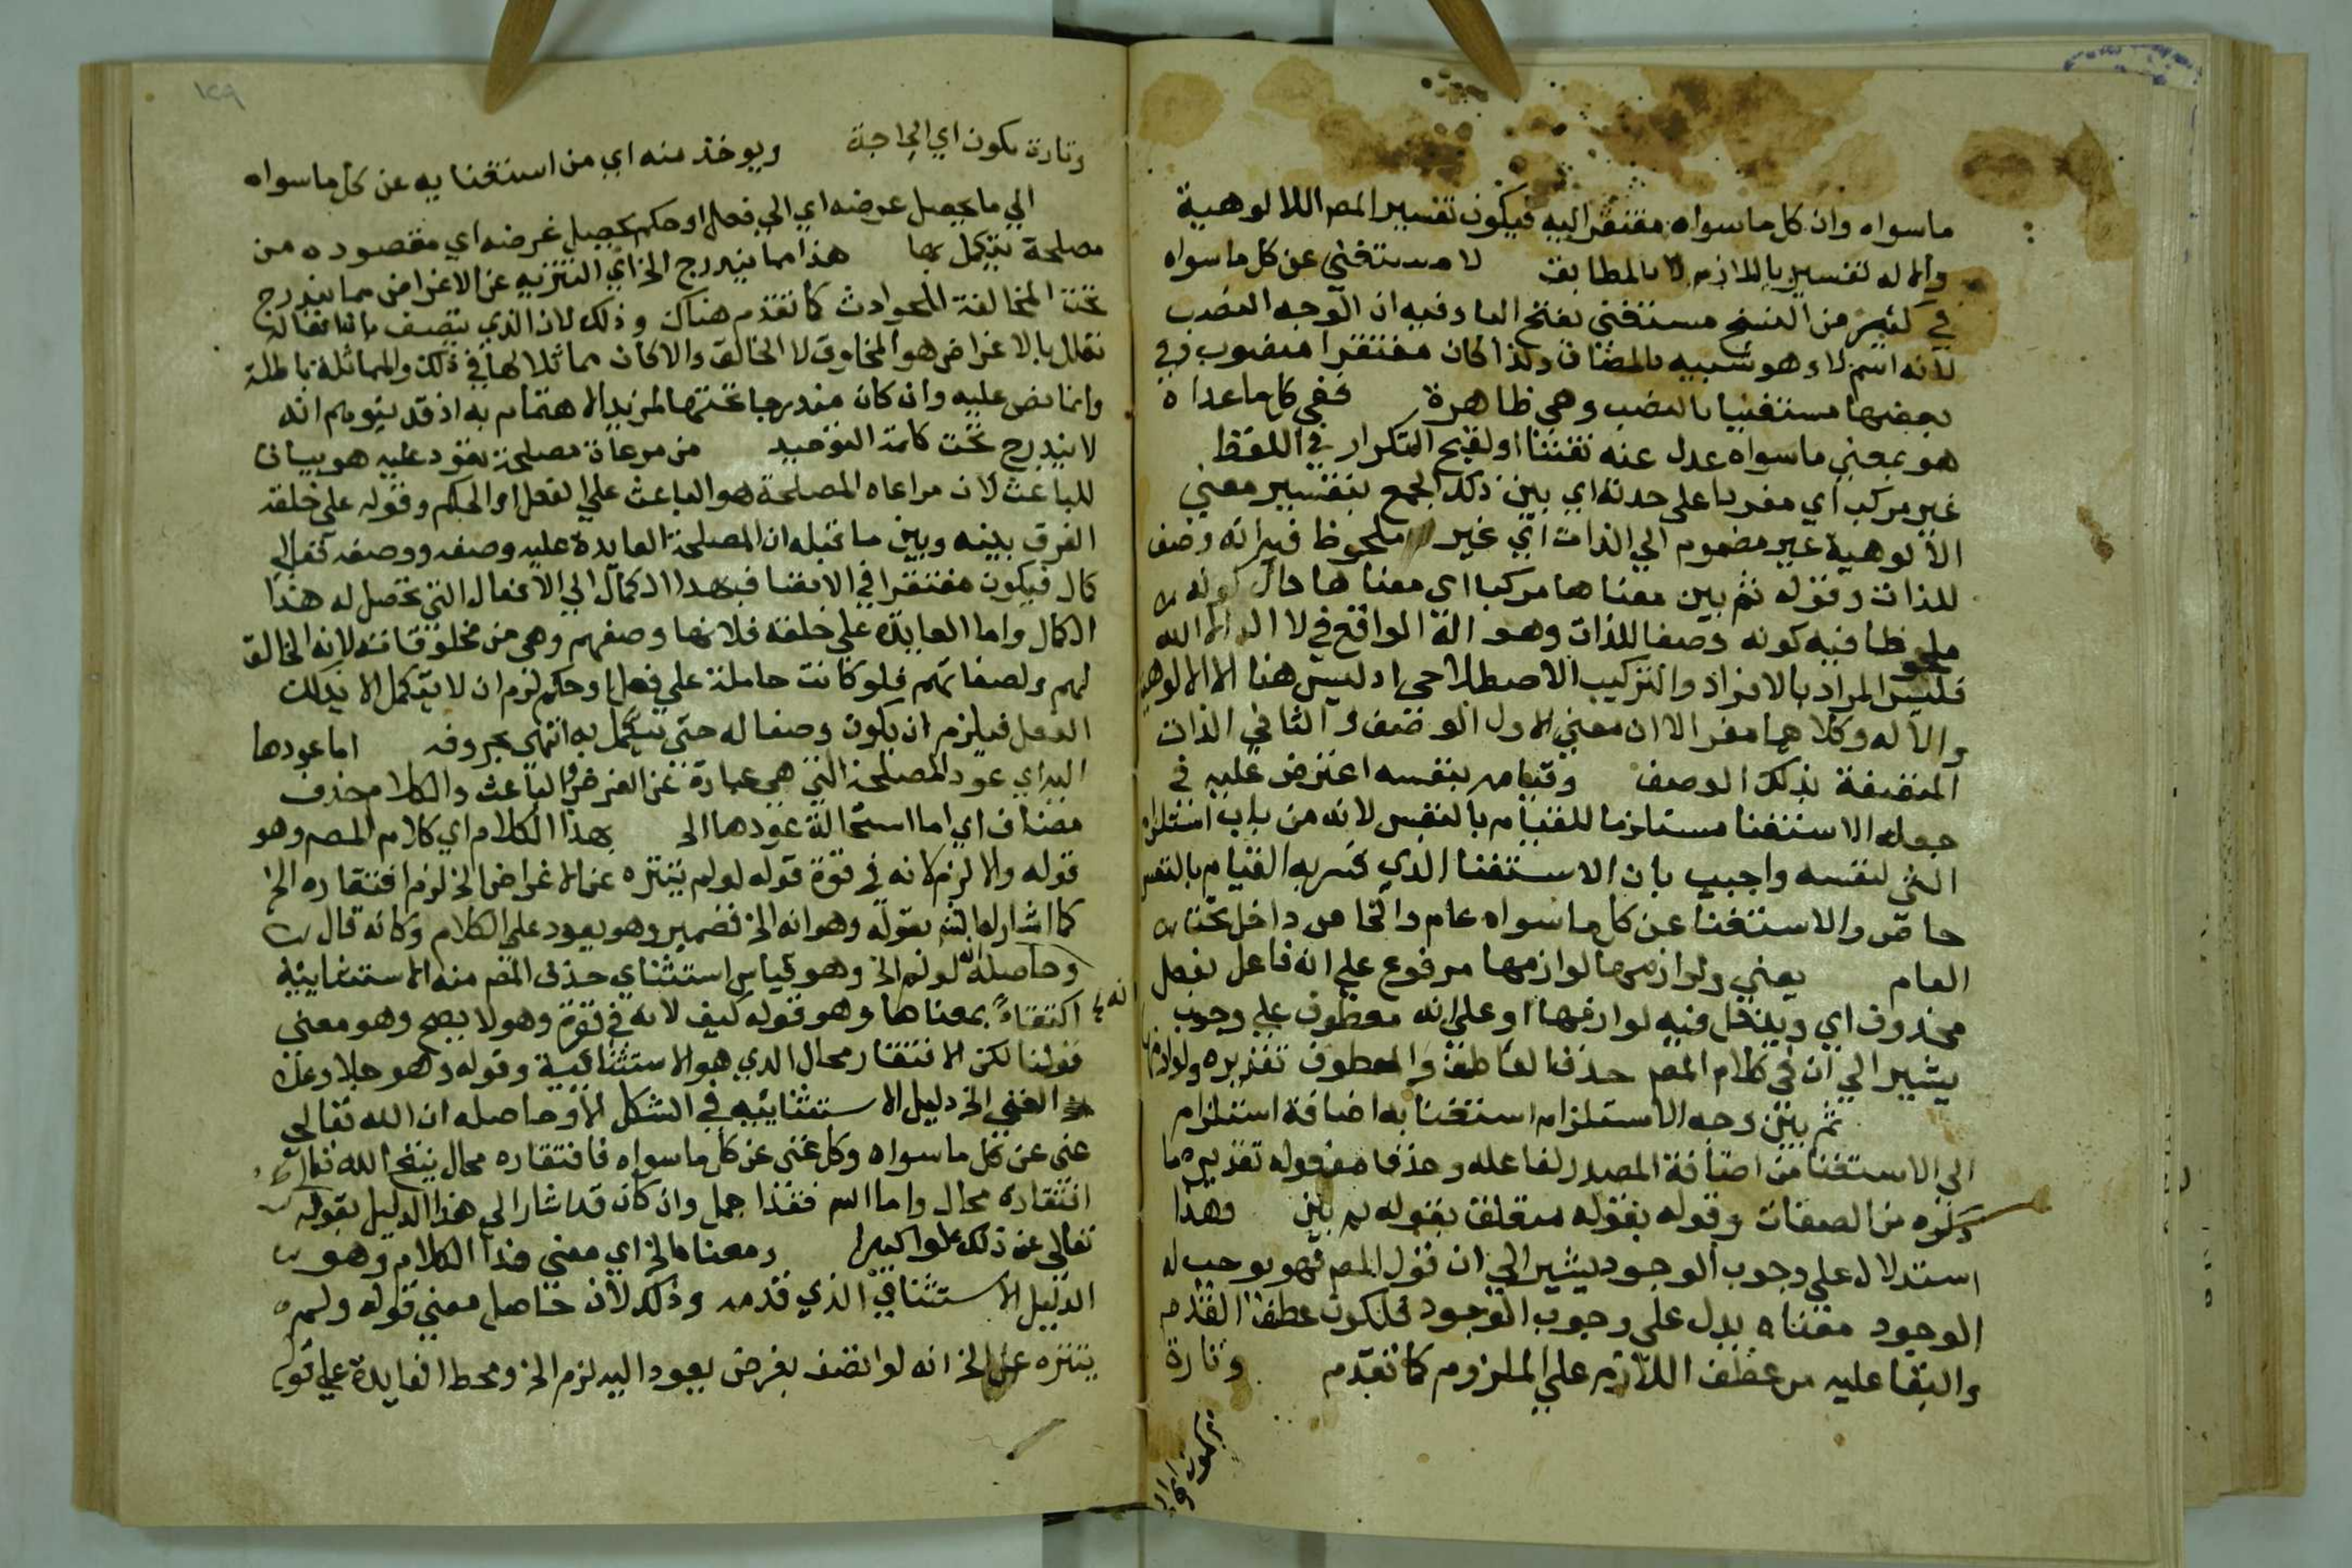 ماسواه وان كل ماسواه مفتقر اليه فيكون تفسير المصم اللالوهية
والاله تفسير باللازم لا بالمطابقة لا مستغني عن كل ماسواه
في كثير من النسخ مستغني بفتح اليا وفيه ان الوجه النصب
لانه اسم لا وهو شبيه بالمضاف ولذا كان مفتقرا منصوب وفي
بعضها مستغنيا بالنصب وهي ظاهرة ففي كل ماعداه
هو بمعني ماسواه عدل عنه تفننا او لقبح التكرار في اللفظ
غير مركب اي مفردا على حدته اي بين ذلك الجمع بتفسير معني
الالوهية غير مضموم الي الذات اي غير ملحوظ فيه انه وصف
للذات وقوله ثم بين معناها مركبا اي معناها حال كونه
ملحوظا فيه كونه وصفا للذات وهو اله الواقع في لا اله الا الله
فليس المراد بالافراد والتركيب الاصطلاحي اذ ليس هنا الا الالوهية
والاله وكلاهما مفرد الا ان معني الاول الوصف والثاني الذات
المتصفة بذلك الوصف وقيامه بنفسه اعترض عليه في
جعله الاستغنا مستلزما للقيام بالنفس لانه من باب استلزام
الشي لنفسه واجيب بان الاستغنا الذي فسر به القيام بالنفس
خاص والاستغنا عن كل ماسواه عام والخاص داخل تحت
العام يعني ولوازمها لوازمها مرفوع على انه فاعل بفعل
محذوف اي ويدخل فيه لوازمها او على انه معطوف علي وجوب
يشير الي ان في كلام المصم حذف العاطف والمعطوف تقديره ولوازمها
ثم بين وجه الاستلزام استغنا به اضافة استلزام
الي الاستغنا من اضافة المصدر لفاعله وحذف مفعوله تقديره ما
ذكره من الصفات وقوله بقوله متعلق بقوله بين وهذا
استدلال على وجوب الوجود يشير الي ان قول المصم فهو يوجب له
الوجود معناه يدل على وجوب الوجود فلكون عطف القدم
والبقا عليه من عطف اللازم علي الملزوم كما تقدم وتارة
تكون اي
١٢٩
وتارة تكون اي الحاجة ويوخذ منه اي من استغنايه عن كل ماسواه
الي ما يحصل غرضه اي الي فعل او حكم يحصل غرضه اي مقصوده من
مصلحة يتكمل بها هذا مما يندرج الخ اي التنزيه عن الاغراض مما يندرج
تحت المخالفة للحوادث كما تقدم هناك وذلك لان الذي يتصف بان افعاله
تعلل بالاغراض هو المخلوق لا الخالق والا كان مماثلا لها في ذلك والمماثلة باطلة
وانما نص عليه وان كان مندرجا تحتها لمزيد الاهتمام به اذ قد يتوهم انه
لا يندرج تحت كلمة التوحيد من مرعاة مصلحة تعود عليه هو بيان
للباعث لان مراعاه المصلحة هو الباعث علي الفعل او الحكم وقوله علي خلقه
الفرق بينه وبين ما قبله ان المصلحة العايدة عليه وصفه ووصفه تعالي
كمال فيكون مفتقرا في الاتصاف بهذا الكمال الي الافعال التي تحصل له هذا
الكمال واما العايدة علي خلقه فلانها وصفهم وهي من مخلوقاته لانه الخالق
لهم ولصفاتهم فلو كانت حاملة علي فعل او حكم لزم ان لا يتكمل الا بذلك
الفعل فيلزم ان يكون وصفا له حتي يتكمل به انتهي بحروفه اما عودها
اليه اي عود المصلحة التي هي عبارة عن الغرض والباعث والكلام حذف
مضاف اي اما استحالة عودها الخ بهذا الكلام اي كلام المصم وهو
قوله والا لزم لانه في قوة قوله لو لم يتنزه عن الاغراض الخ لزم افتقاره الخ
كما اشار لها الش بقوله وهو انه الخ فضمير وهو يعود علي الكلام وكانه قال
وحاصله انه لو لزم الخ وهو قياس استثناي حذف المصم منه الاستثنايية
اكتفاء بمعناها وهو قوله كيف لانه في قوة وهو لا يصح وهو معني
قولنا لكن الافتقار محال الذي هو الاستثنائية وقوله وهو جل وعز
الغني الخ دليل الاستثناييه في الشكل الاول وحاصله ان الله تعالي
غني عن كل ماسواه وكل غني عن كل ماسواه فافتقاره محال ينتج الله تعالي
افتقاره محال واما الش فقد اجمل وان كان قد اشار الي هذا الدليل بقوله
تعالي عن ذلك علوا كبيرا ومعناه الخ اي معني هذا الكلام وهو
الدليل الاستثنائي الذي قدمه وذلك لان حاصل معني قوله ولم
يتنزه عن الخ انه لو اتصف بغرض يعود اليه لزم الخ ومحط الفايدة علي قوله